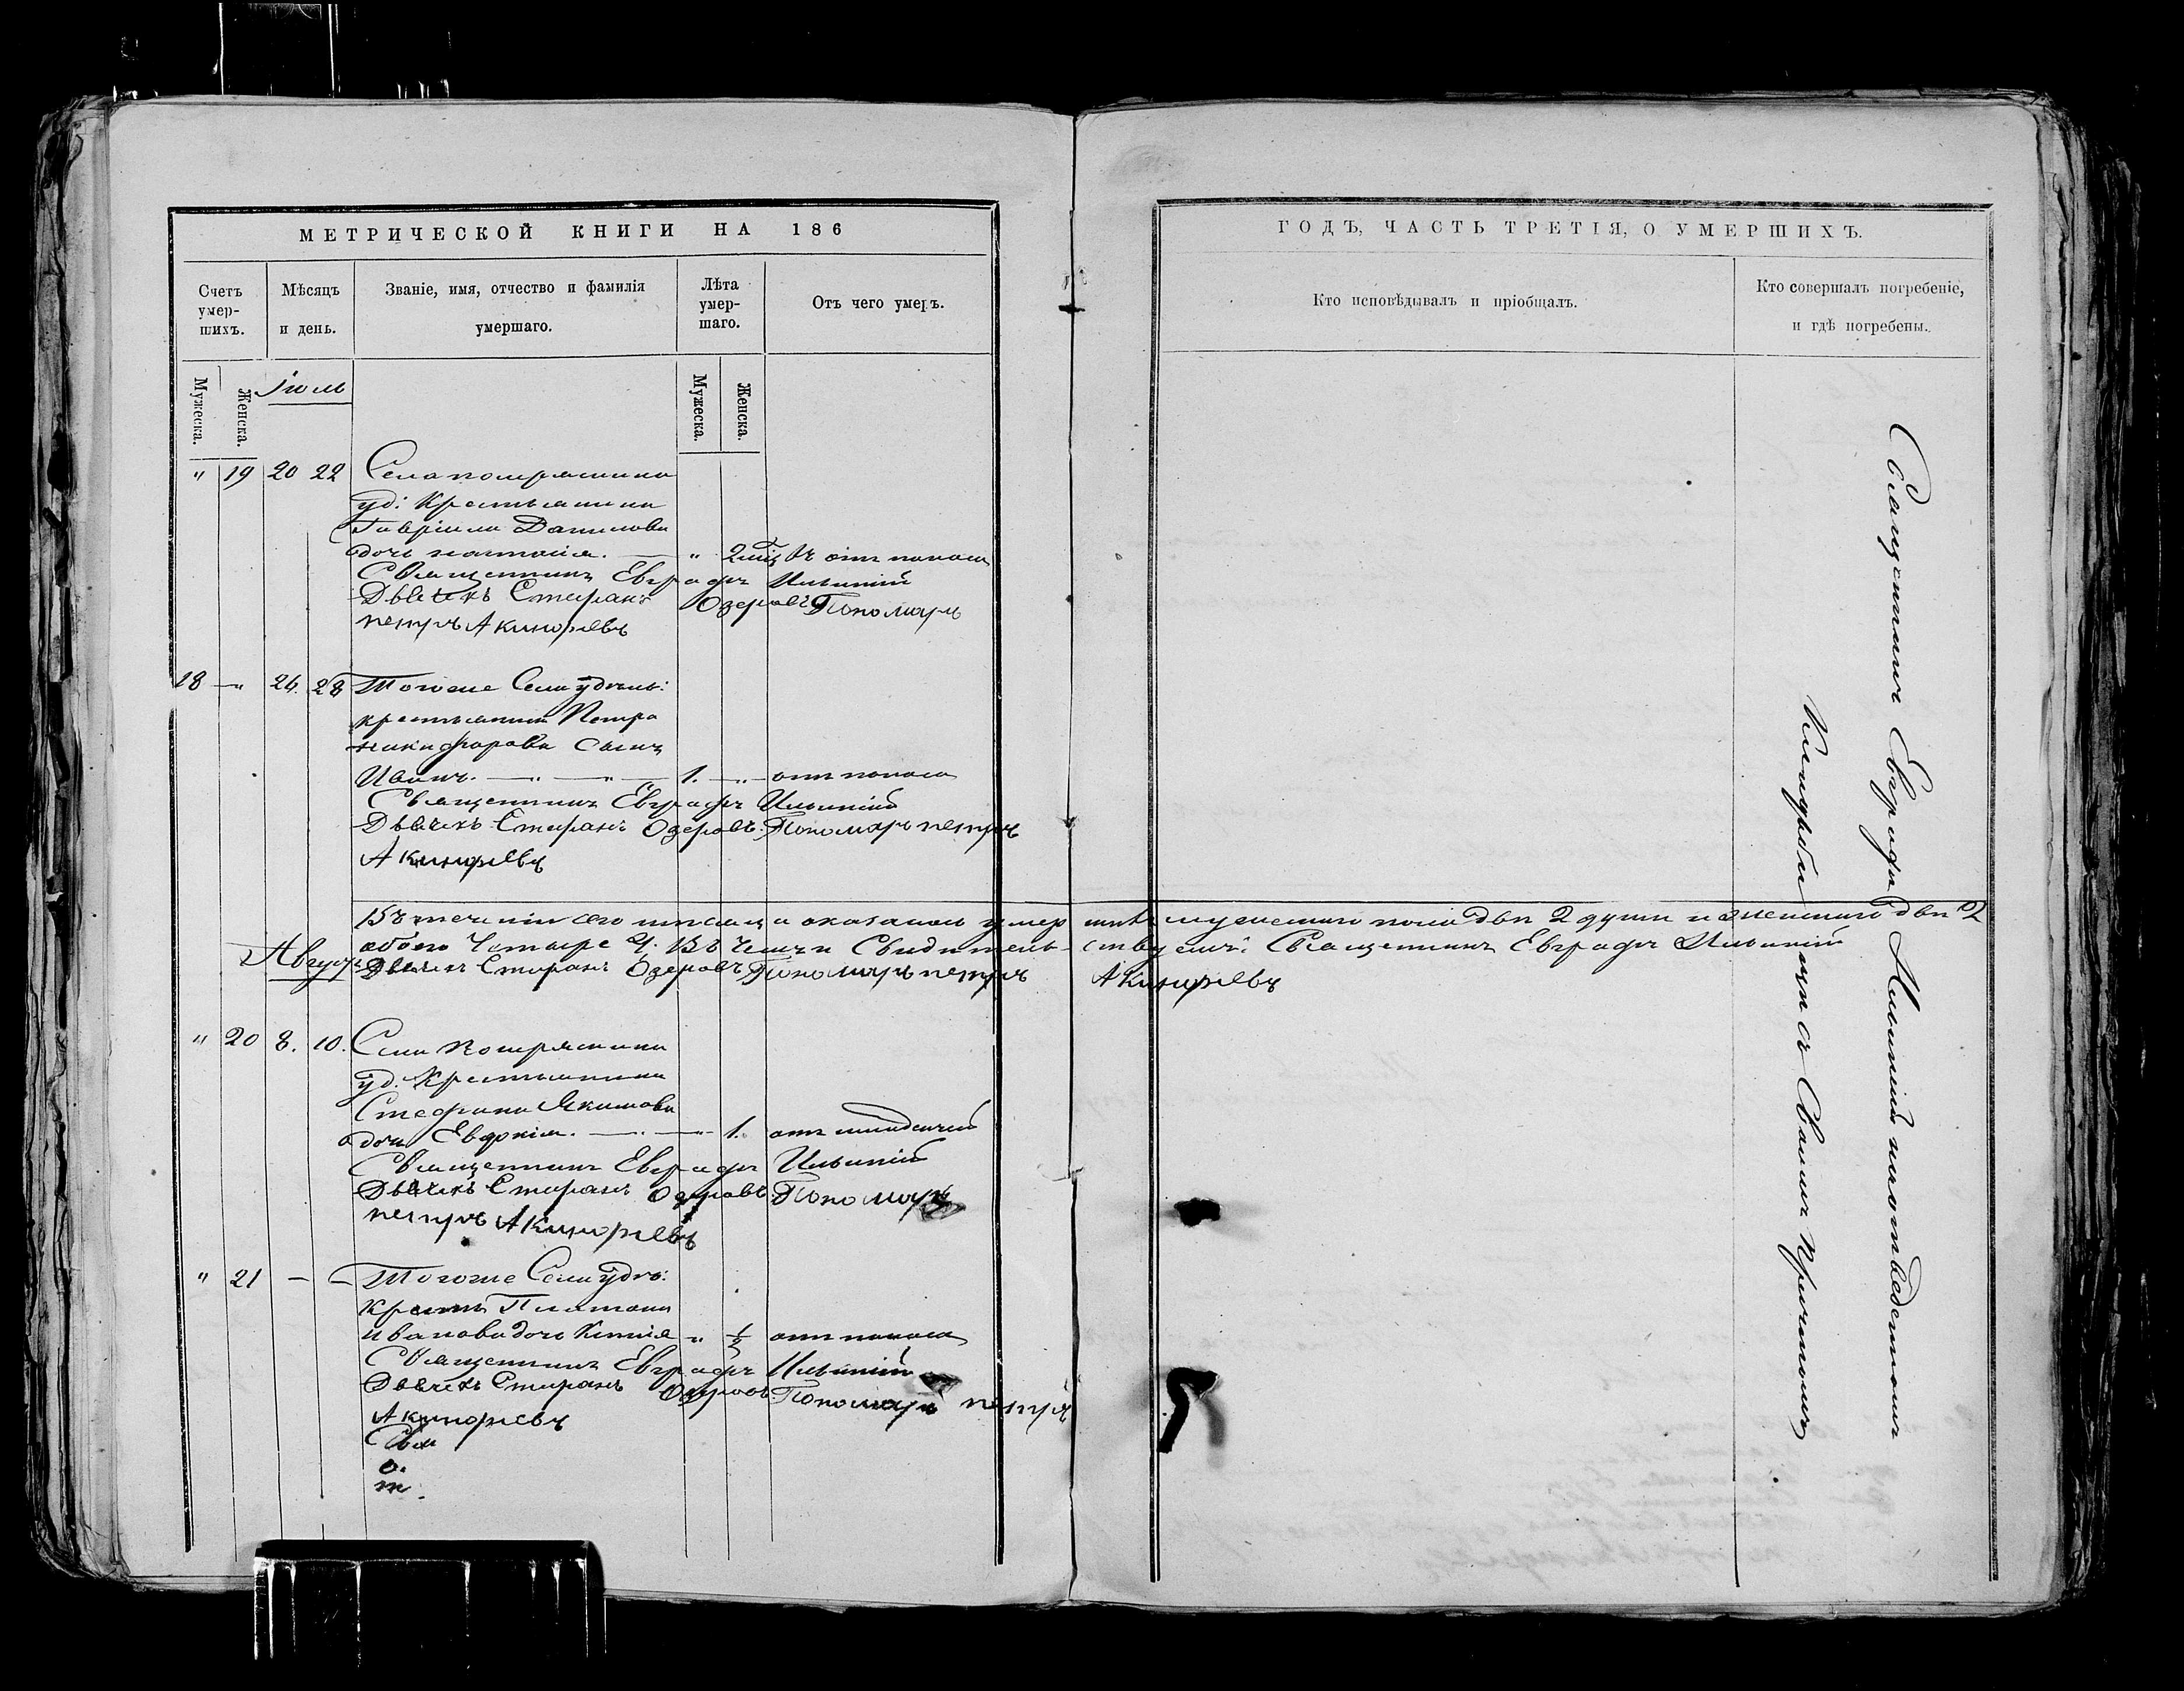 МЕТРИЧЕСКОЙ КНИГИ НА 186
Счетъ умер-шихъ.
Мѣсяцъ и день.
Званіе, имя, отчество и фамилія умершаго.
Лѣта умер-шаго.
Отъ чего умеръ.
Мужеска.
Женска.
Мужеска.
Женска.
Іюль
" 19 20 22 Села
уд: Крестьянина
Гавріила Данилова
дочь " отъ поноса
Священникъ Евграфъ Ильинскій
Дьячекъ Стефанъ Озеровъ Пономарь
петръ Акинфіевъ
18 " 26. 28 Тогоже Села удѣль:
крестьянина Петра
никифорова сынъ
Иванъ. 1. " отъ поноса
Священникъ Евграфъ Ильинскій
Дьячекъ Стефанъ Озеровъ. Пономарь петръ
Акинфіевъ
Въ теченіи сего мѣсяца оказалось умершихъ мужескаго пола двѣ 2 души и женскаго двѣ 2
обоего Четыре 4. Въ чемъ и Свидѣтель-ствуемъ: Священникъ Евграфъ Ильинскій
Августъ
Дьячекъ Стефанъ Озеровъ Пономарь петръ Акинфіевъ
" 20 8. 10. Села
уд. Крестьянина
Стефана Якимова
дочь Евфкія. 1. отъ младенчей
Священникъ Евграфъ Ильинскій
Дьячекъ Стефанъ Озеровъ. Пономарь
петръ Акинфіевъ
" 21 — — Тогоже Села удѣ:
Крестья Платона
Иванова дочь " ½ отъ поноса
Священникъ Евграфъ Ильинскій
Дьячекъ Стефанъ Озеровъ Пономарь петръ
Акинфіевъ
Свя
о.
т.
ГОДЪ, ЧАСТЬ ТРЕТІЯ, О УМЕРШИХЪ.
Кто исповѣдывалъ и пріобщалъ.
Кто совершалъ погребеніе, и гдѣ погребены.
Священникъ Евграфъ Ильинскій на отведенномъ
Кладбищѣ съ Своимъ Причтомъ